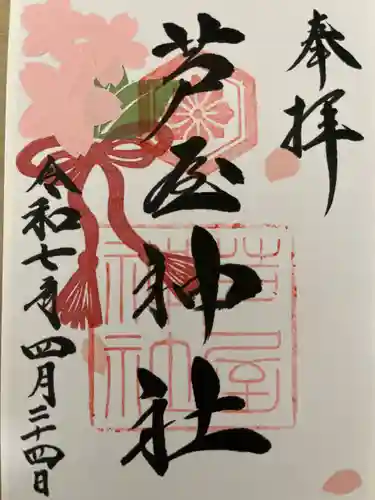 奉拝
芦屋神社
芦屋
神社
令和七年四月二十四日